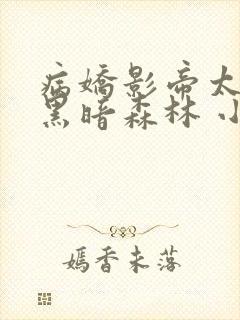 病嬌影帝太
黑暗森林 小
嫣香未落